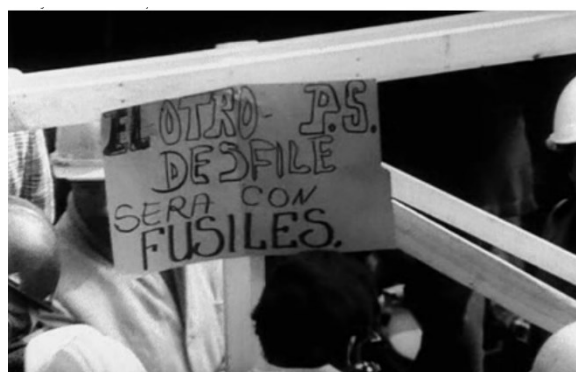 EL OTRO- P.S.
DESFILE
SERA CON
FUSILES.